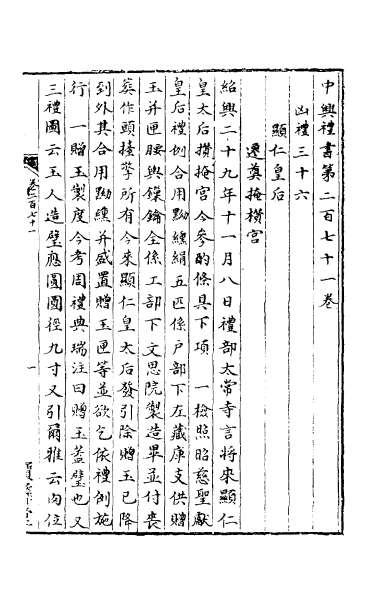 中興禮書第二百七十一卷
凶禮三十六
顯仁皇后
遷奠掩欑宮
紹興二十九年十一月八日禮部太常寺言將來顯仁
皇太后欑掩宮今參酌條具下項 一檢照昭慈聖獻
皇后禮例合用黝纁絹五匹係戶部下左藏庫支供贈
玉并匣腰輿鏁鑰全係工部下文思院製造畢並付喪
葬作頭擡擎所有今來顯仁皇太后發引除贈玉已降
到外其合用黝纁并盛置贈玉匣等並欲乞依禮例施
行 一贈玉製度今考周禮典瑞注曰贈玉蓋璧也又
三禮圖云玉人造璧應圓圓徑九寸又引爾雅云肉位
卷二百七十一
一